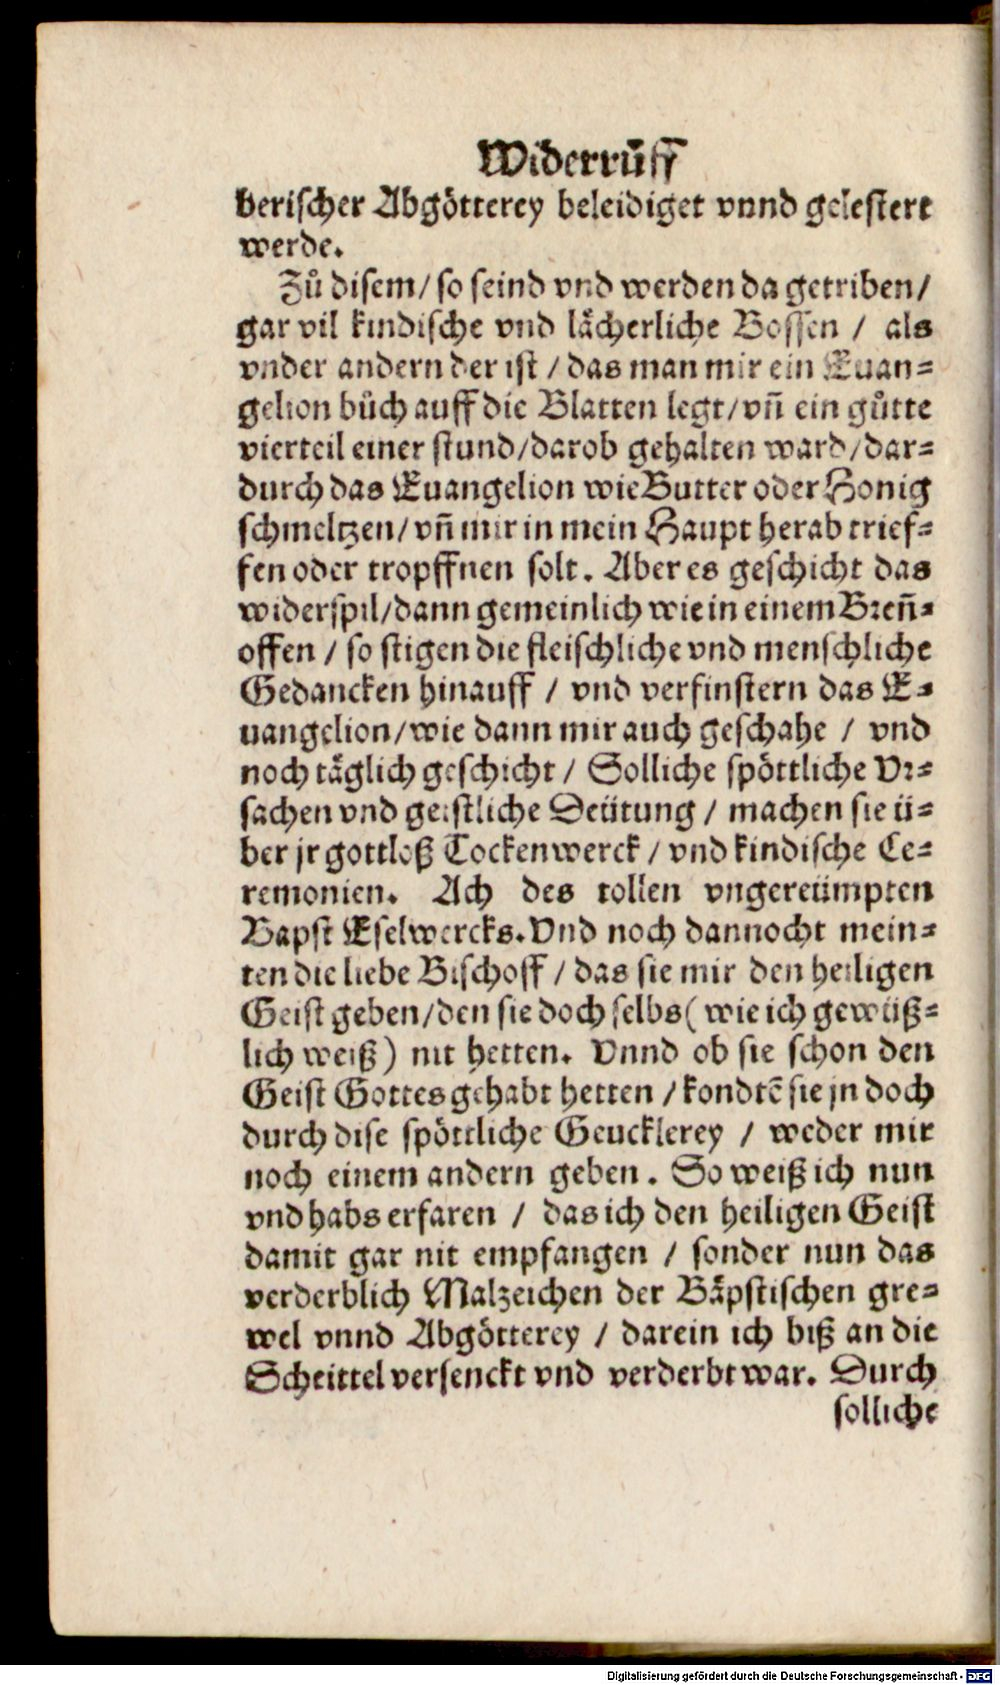 Widerrůff
berischer Abgötterey beleidiget vnnd gelestert
werde.
Zů disem/ so seind vnd werden da getriben/
gar vil kindische vnd lächerliche Bossen / als
vnder andern der ist / das man mir ein Euan=
gelion bůch auff die Blatten legt/ vñ ein gůtte
vierteil einer stund/darob gehalten ward/dar=
durch das Euangelion wie Butter oder Honig
schmeltzen/ vñ mir in mein Haupt herab trief=
fen oder tropffnen solt. Aber es geschicht das
widerspil/dann gemeinlich wie in einem Breñ=
offen / so stigen die fleischliche vnd menschliche
Gedancken hinauff / vnd verfinstern das E=
uangelion/wie dann mir auch geschahe / vnd
noch täglich geschicht / Solliche spöttliche Vr=
sachen vnd geistliche Deütung / machen sie ü=
ber jr gottloß Tockenwerck / vnd kindische Ce=
remonien. Ach des tollen vngereümpten
Bapst Eselwercks. Vnd noch dannocht mein=
ten die liebe Bischoff / das sie mir den heiligen
Geist geben/den sie doch selbs( wie ich gewüß=
lich weiß) nit hetten. Vnnd ob sie schon den
Geist Gottes gehabt hetten / kondtē sie jn doch
durch dise spöttliche Geucklerey / weder mir
noch einem andern geben. So weiß ich nun
vnd habs erfaren / das ich den heiligen Geist
damit gar nit empfangen / sonder nun das
verderblich Malzeichen der Bäpstischen gre=
wel vnnd Abgötterey / darein ich biß an die
Scheittel versenckt vnd verderbt war. Durch
solliche
Digitalisierung gefördert durch die Deutsche Forschungsgemeinschaft - DFG